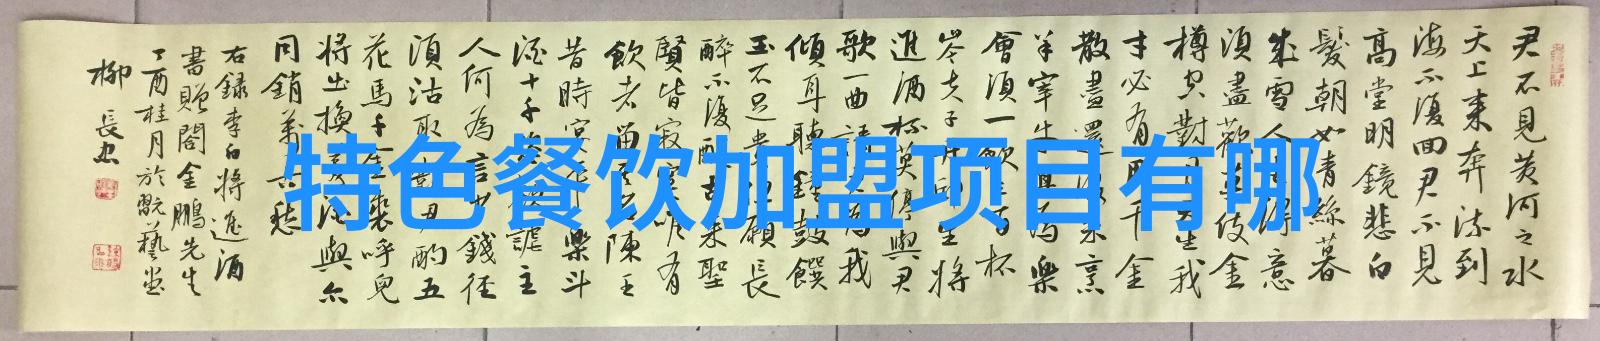 特色餐饮加盟项目有哪
君不見黃河之水
天上來奔流到
海不復回君不見
高堂明鏡悲白
髮朝如青絲暮
成雪人生得意
須盡歡莫使金
樽空對月天生我
才必有用千金
散盡還復來烹
羊宰牛且為樂
會須一飲三百杯
岑夫子丹丘生將
進酒杯莫停與君
歌一曲請君為我
傾耳聽鐘鼓饌
玉不足貴但願長
醉不復醒古來聖
賢皆寂寞唯有
飲者留其名陳王
昔時宴平樂斗
酒十千恣歡謔主
人何為言少錢徑
須沽取對君酌五
花馬千金裘呼兒
將出換美酒與尒
同銷萬古愁
右錄李白將進酒
書贈閻金鵬先生
丁酉桂月於翫藝堂
柳長忠